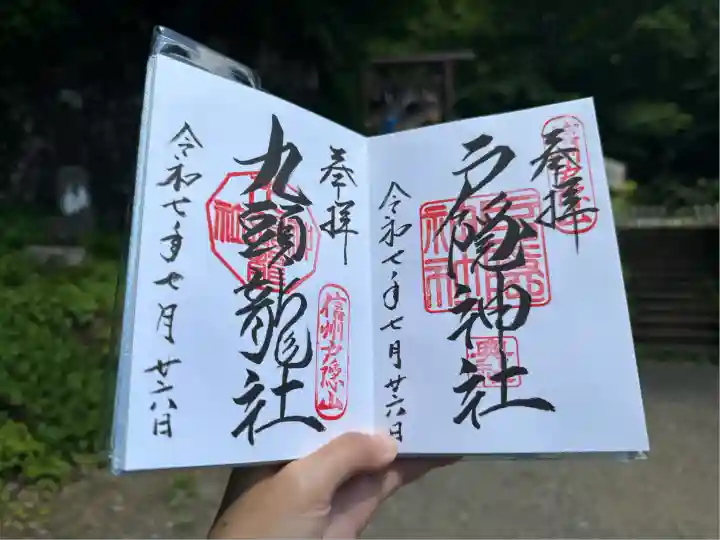 奉拝
戸隠神社
奥社
令和七年七月廿六日
奉拝
九頭龍社
信州戸隠山
令和七年七月廿六日